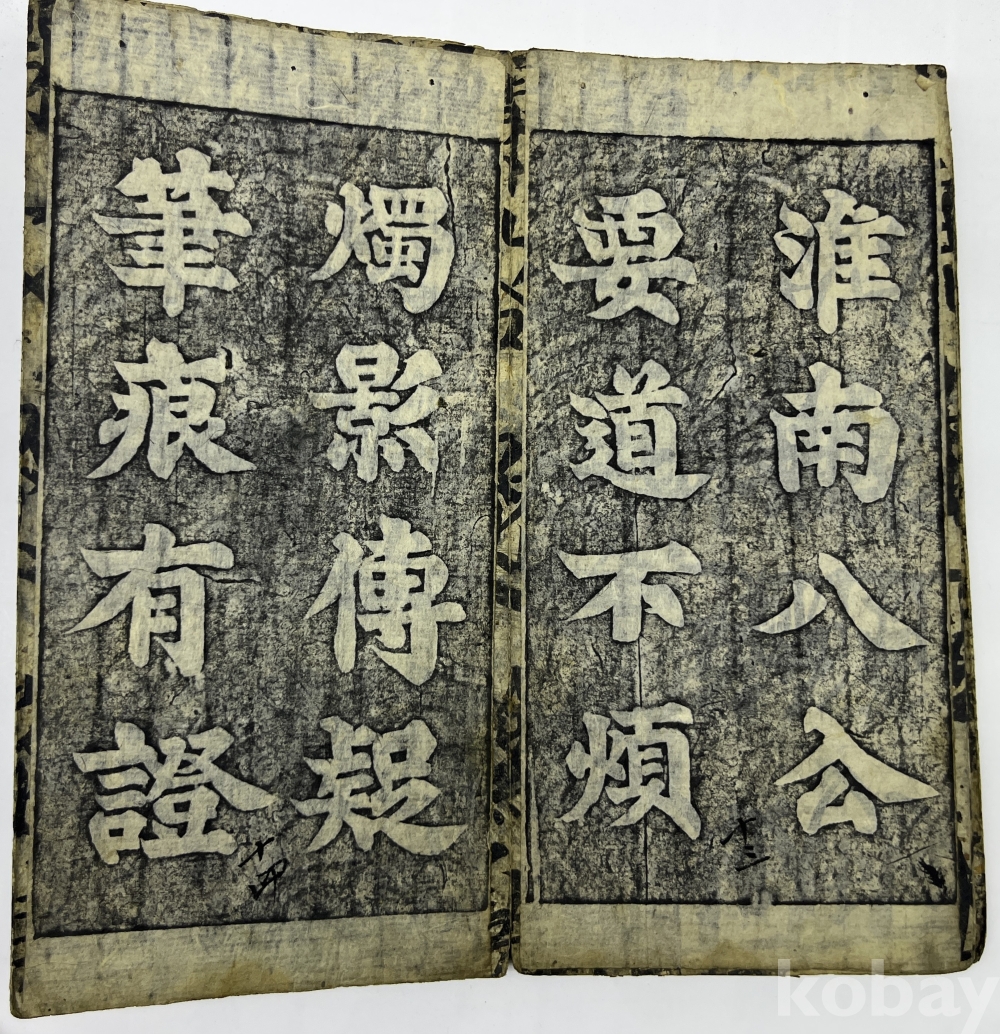 淮南八公
要道不煩
十三
燭影傳疑
筆痕有證
十四
kobay